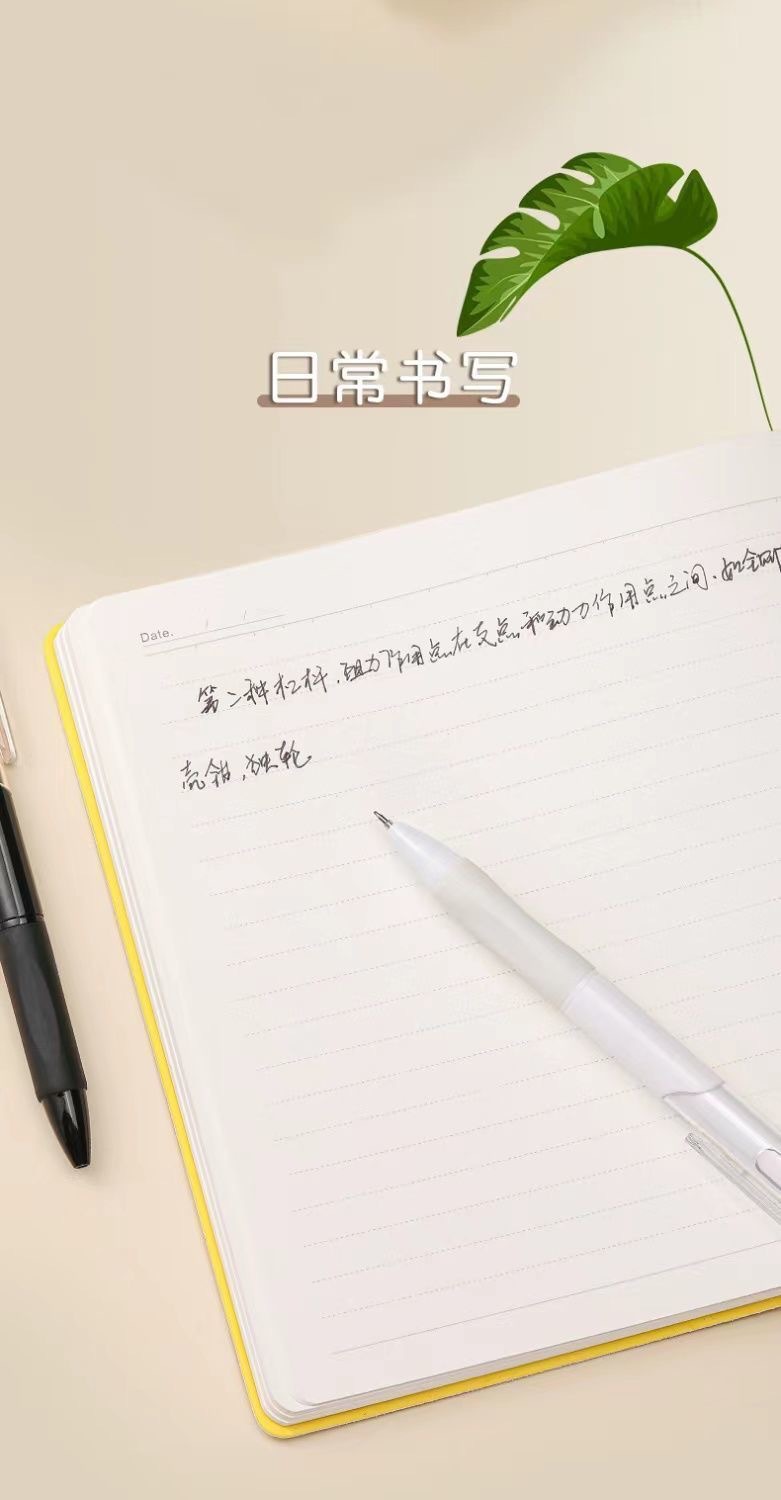 日常书写
Date. / /
第二种杠杆,阻力作用点在支点和动力作用点之间.如
壳钳,独轮